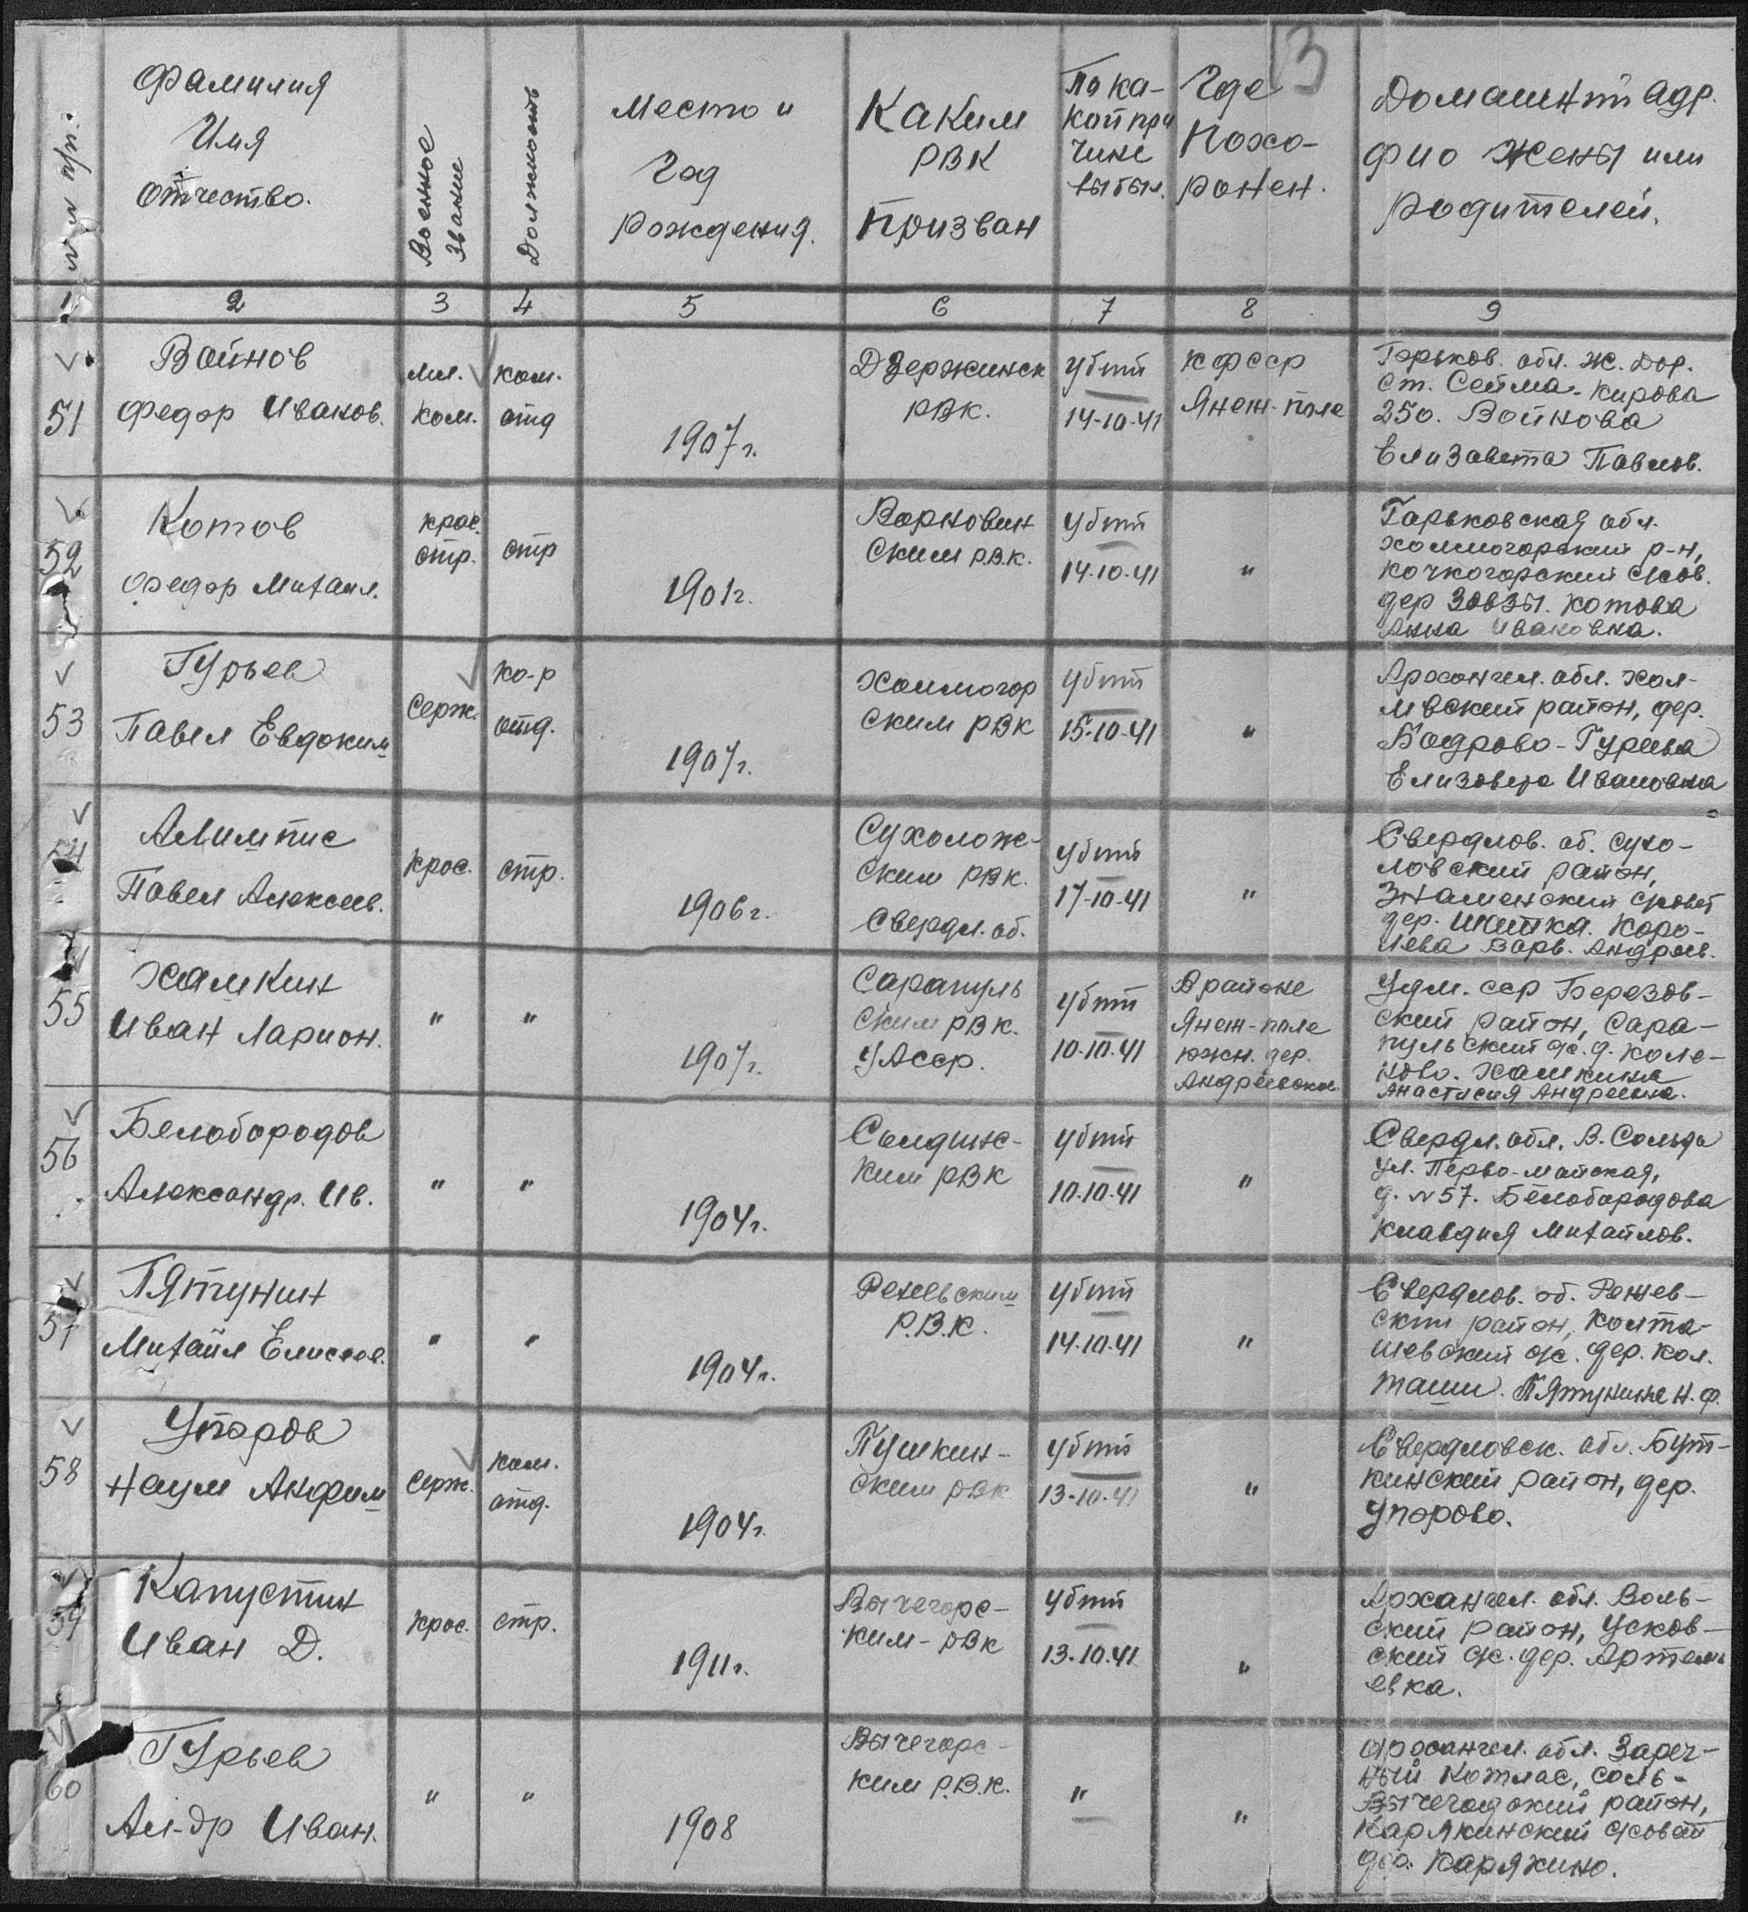 13
№№ п/п.
Фамилия
Имя
Отчество.
Военное
звание
Должность
Место и
Год
рождения.
Каким
РВК
Призван
По ка-
кой при
чине
выбыл.
Где
Похо-
ронен.
Домашний адр.
ФИО жены или
родителей.
1 2 3 4 5 6 7 8 9
51
Войнов
Федор Иванов.
мл.
ком.
ком.
отд
1907 г.
Дзержинск
РВК.
убит
14-10-41
КФССР
Янеж-поле
Горьков. обл. ж. дор.
ст. Сейма. Кирова
250. Войнова
Елизавета Павлов.
52
Котов
Федор Михаил.
крас.
стр.
стр
1901 г.
Ворновин
ским Р.В.К.
убит
14-10-41
"
Горьковская обл.
Холмогорский р-н,
Кочкогорский с/сов.
дер Котова
Анна Ивановна.
53
Гурьев
Павел Евдоким
серж.
ко-р
отд.
1907 г.
Холмогор
ским РВК
убит
15-10-41
"
Архангел. обл. Хол-
мвский район, дер.
Бодрово-Гурева
Елизовета Ивановна
54
Павел Алексеев.
крас.
стр.
1906 г.
Сухолож-
ским РВК.
Свердл. об.
убит
17-10-41
"
Свердлов. об. Сухо-
ловский район,
Знаменский совет
дер. Шата. Каро-
лева Варв. Андреев.
55
Хамкин
Иван Ларион.
"
"
1907 г.
Сарапуль
ским РВК.
УАССР.
убит
10-10-41
В районе
Янеж-поле
южн. дер.
Андреевская
Удм. ССР Березов-
ский район, Сара-
пульский с/с. д. Коле-
ново. Хамкина
Анастасия Андреевна.
56
Белобородов
Александр. Ив.
"
"
1904 г.
Салдинс-
ким РВК
убит
10-10-41
"
Свердл. обл. В. Сальда
ул. Перво-майская,
д. №57. Белобородова
Клавдия Михайлов.
57
Пятунин
Михаил Елисеев.
"
"
1904 г.
Режевским
Р.В.К.
убит
14-10-41
"
Свердлов. об. Режев-
ский район, Колта-
шевский с/с. дер. Кол.
таши. Пятунина Н. Ф.
58
Упоров
Наум Анфим
серж.
ком.
отд.
1904 г.
Пушкин-
ским РВК
убит
13-10-41
"
Свердловск. обл. Бут-
кинский район, дер.
Упорово.
59
Капустин
Иван Д.
крас.
стр.
1911 г.
Вычегорс-
ким-РВК
убит
13-10-41
"
Архангел. обл. Воль-
ский район, Усков-
ский с/с. дер. Артемь
евка.
60
Гурьев
Ал-др Иван.
"
"
1908
Вычегорс-
ким Р.В.К.
"
"
Архангел. обл. Зареч-
ный Котлас, Соль-
Вычегодский район,
Карякинский с/совет
дер. Карякино.